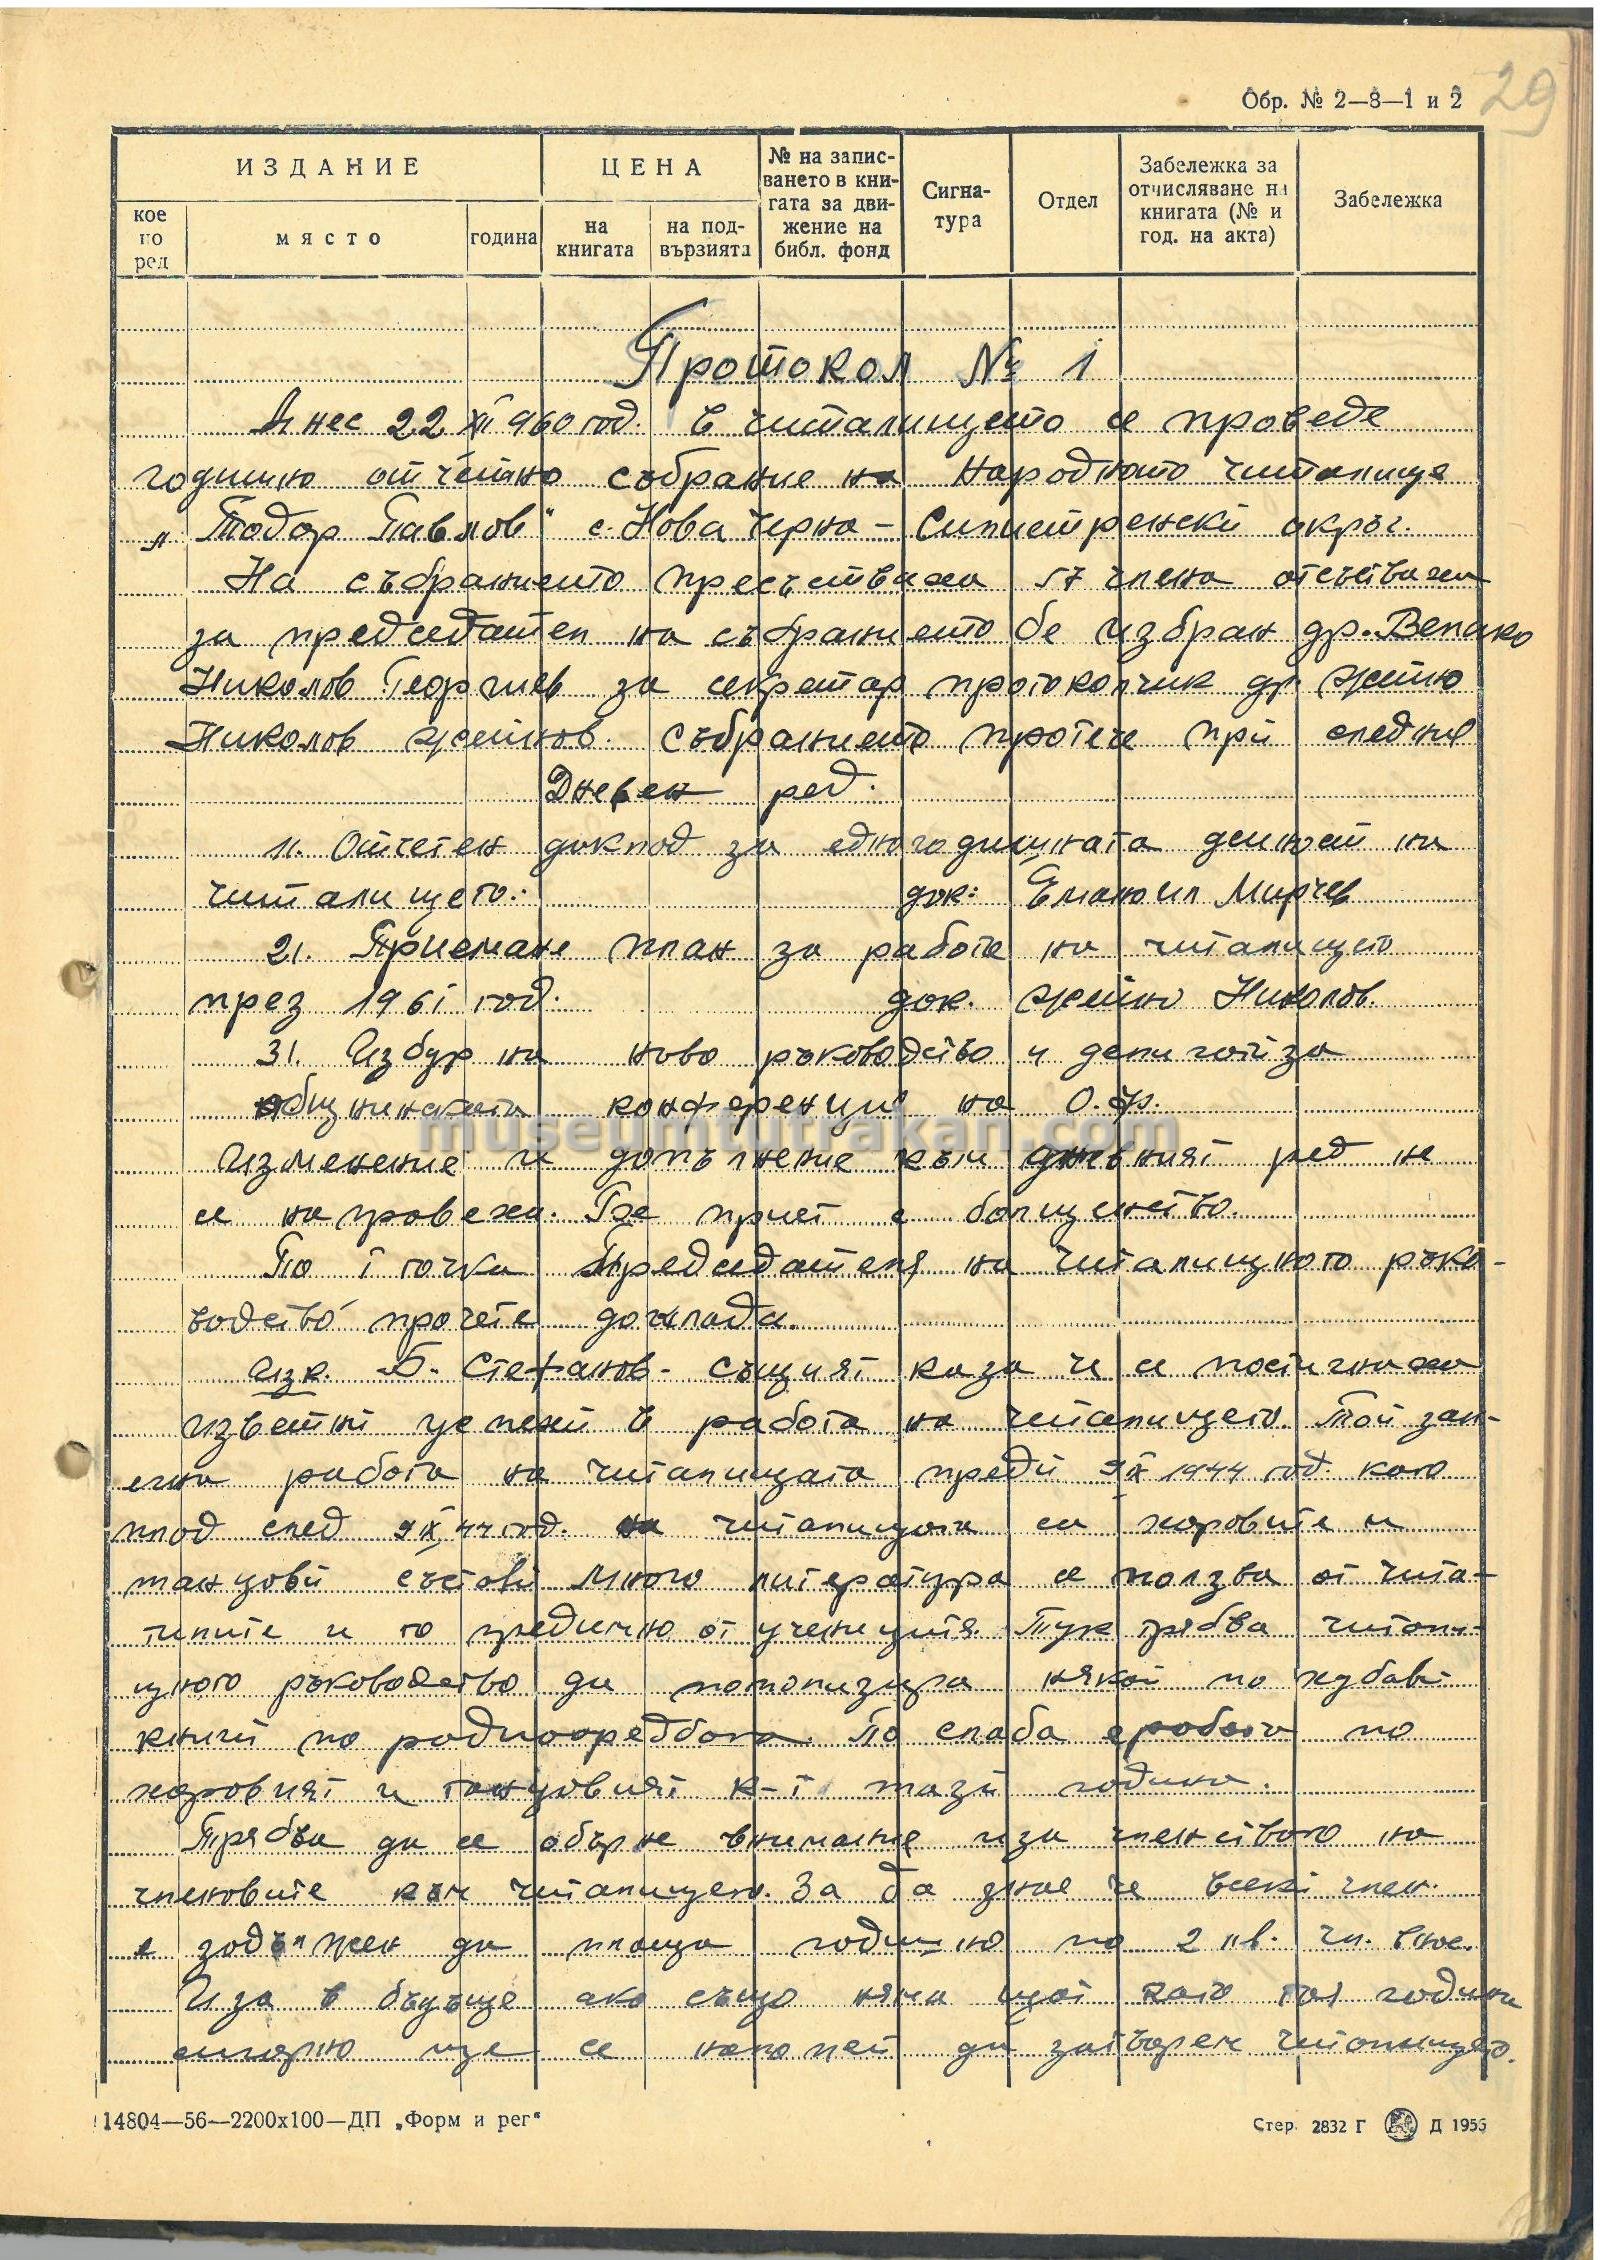 29
Обр. № 2—8—1 и 2
ИЗДАНИЕ
ЦЕНА
№ на запис-
ването в кни-
гата за дви-
жение на
библ. фонд
Сигна-
тура
Отдел
Забележка за
отчисляване на
книгата (№ и
год. на акта)
Забележка
кое
по
ред
място
година
на
книгата
на под-
вързията
Протокол № 1
Днес 22 XII 960 год. в читалището се проведе
годишно отчетно събрание на Народното читалище
„Тодор Павлов" с. Нова Черна – Силистренски окръг.
На събранието пресъстваха 57 члена отсъстваха
за председател на събранието бе избран др. Велико
Николов Георгиев за секретар протоколчик др Жейно
Николов Жейнов. Събранието протече при следния
Дневен ред.
1. Отчетен доклад за едногодишната дейност на
читалището. док: Емануил Мирчев
2. Приемане план за работа на читалището
през 1961 год. док. Жейно Николов.
3. Избур на ново ръководство и делигати за
общинската конференция на О.Ф.
museumtutrakan.com
Изменение и допълнение към дневният ред не
се направеха. Бе приет с болшенство.
По I точка Председателя на читалищното ръко-
водство прочете доклада.
Изк. Б. Стефанов - същият каза че се постигнаха
известни успехи в работа на читалището. Той зап-
очна работа на читалищата преди 9 IX 1944 год. като
плод след 9 IX 44 год. на читалищата са хоровите и
танцови състави Много литература се ползва от чита-
телите и то предимно от учениците. Тук трябва читали-
щното ръководство да популизира някои по хубави
книги по радиоредбата. По слаба е работа по
хоровият и танцовият к-т тази година.
Трябва да се обърне внимание и за членството на
членовите към читалището. За да знае че всеки член.
е задължен да плаща годишно по 2 лв. чл. внос.
И за в бъдъще ако също няма щат като тая година
сигорно ще се наложи да затворем читалището.
14804—56—2200x100—ДП „Форм и рег"
Стер. 2832 Г Д 1956